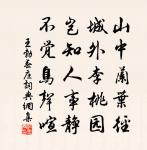 山中蘭葉徑
城外李桃园
豈知人事靜
不覺鳥聲喧
王勃春庄詞典網集